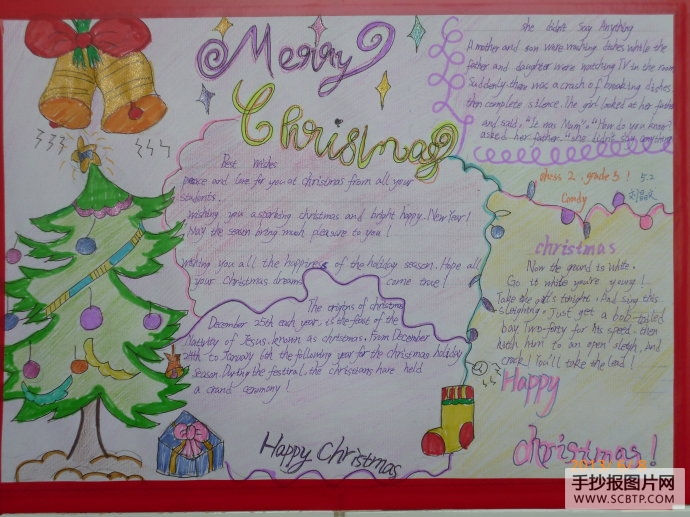 Merry
Christmas
she didn't Say Anything
A mother and son were washing dishes while the
father and daughter were watching TV in the room
Suddenly there was a crash of breaking dishes,
then complete silence. The girl looked at her father
and said, "It was Mum". "How do you know?"
asked her father. "she didn't say anything
chess 2, grade 5! 5.2
Candy
Best Wishes
peace and love for you at christmas from all your
students.
wishing you a sparking christmas and bright happy New Year!
May the season bring much pleasure to you!
wishing you all the happiness of the holiday season. Hope all
your Christmas dreams come true!
The origins of christmas
December 25th each year, is the feast of the
Nativity of Jesus, known as christmas. From December
24th to January 6th the following year for the christmas holiday
season. During the festival, the christians have held
a grand ceremony!
Happy Christmas
christmas
Now the ground is white.
Go it white you're young!
Take the girls tonight. And sing this
sleighing. Just get a bob-tailed
bay Two-forty for his speed. then
hitch him to an open sleigh, And
crack! You'll take the lead!
Happy
christmas!
手抄报图片网
WWW.SCBTP.COM